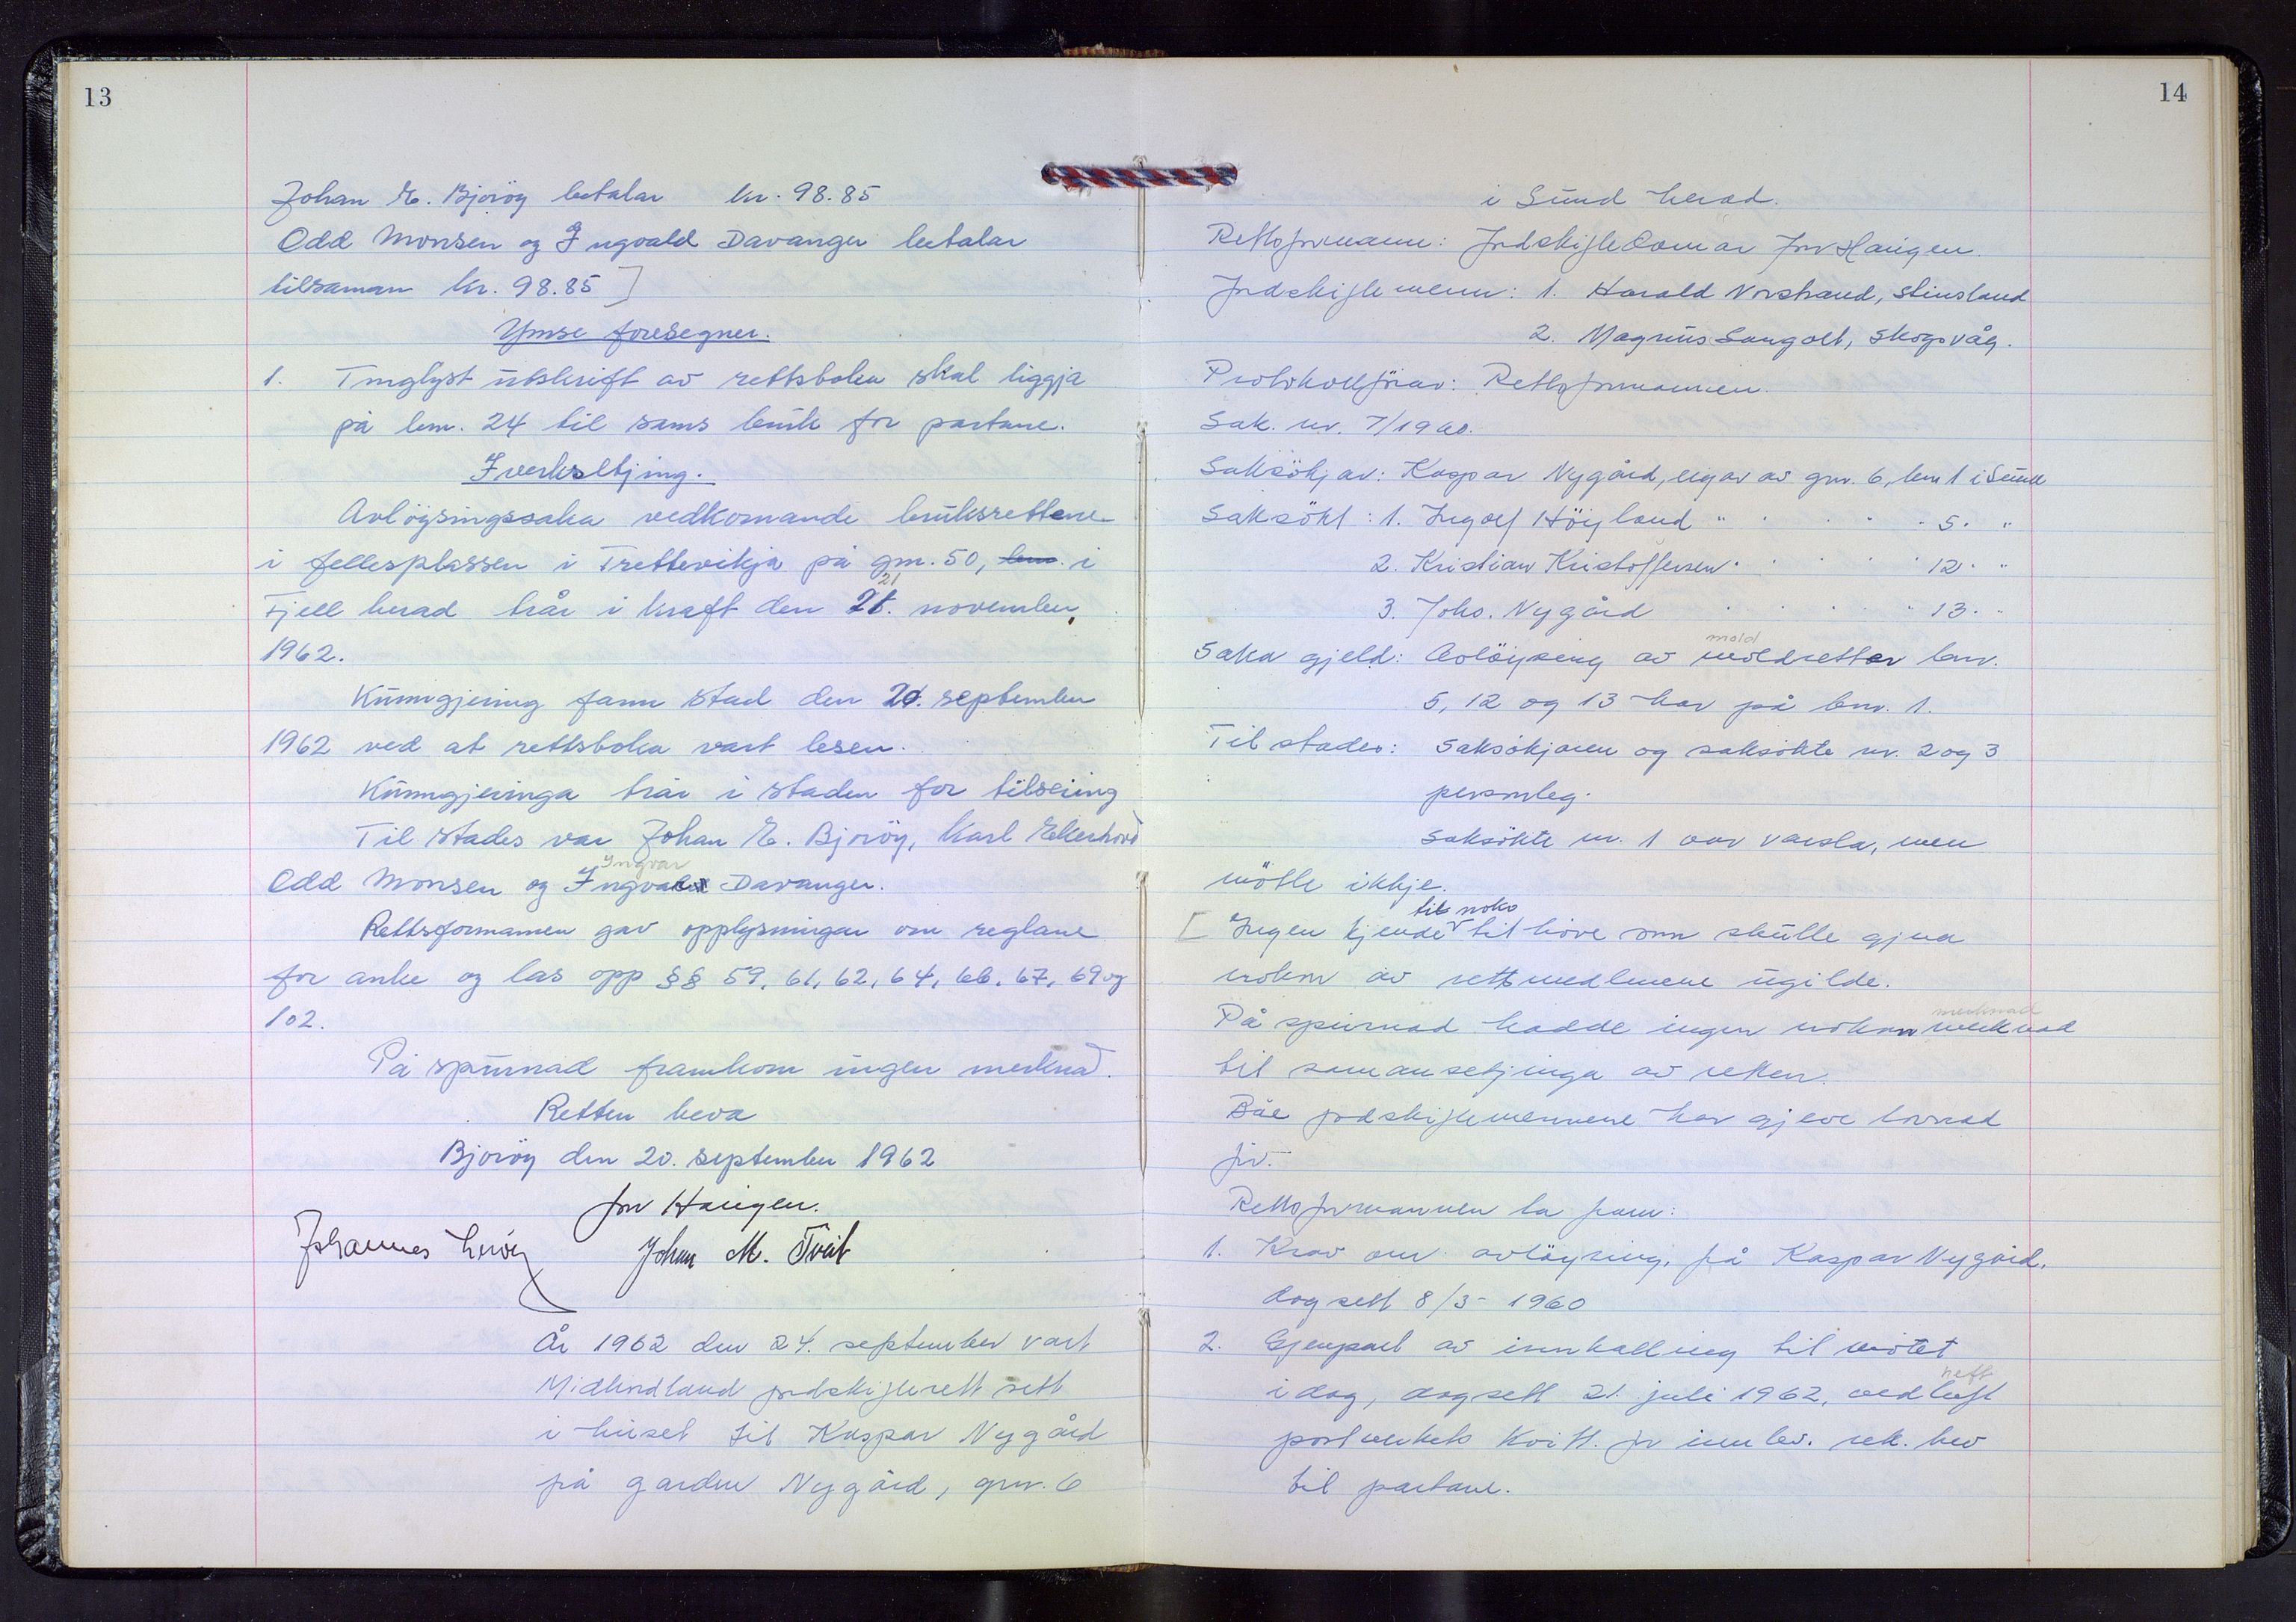 13
Johan E. Bjoröy betalar kr. 98.85
Odd Monsen og Ingvald Davanger betalar
tilsaman kr. 98.85]
Ymse foresegner.
1. Tinglyst utskrift av rettsboka skal liggja
på bnr. 24 til sams bruk for partane.
Iverksetjing.
Avlöysingssaka vedkomande bruksrettene
i fellesplassen i Trettevikja på gnr. 50, bnr. i
21
Fjell herad trår i kraft den 21. november
1962.
Kunngjering fann stad den 20. september
1962 ved at rettsboka vart lesen.
Kunngjeringa trår i staden for tilseiing
Til stades var Johan E. Bjoröy, Karl Ekerhovd
Yngvar
Odd Monsen og Ingvald Davanger.
Rettsformannen gav opplysningar om reglane
for anke og las opp §§ 59, 61, 62, 64, 66, 67, 69 og
102.
På spurnad framkom ingen merknad.
Retten heva
Bjoröy den 20. september 1962
Jon Haugen.
Johannes Johan M. Tveit
År 1962 den 24. september vart
Midhordland jordskifterett sett
i huset til Kaspar Nygård
på garden Nygård, gnr. 6
14
i Sund herad.
Rettsformann: Jordskiftedomar Jon Haugen.
Jordskiftemenn: 1. Harald Norstrand, Steinsland
2. Magnus Sangolt, Skogsvåg.
Protokollförar: Rettsformannen.
Sak. nr. 7/1960.
Saksökjar: Kaspar Nygård, eigar av gnr. 6, bnr 1 i Sund
Saksökt: 1. Ingolf Höyland " " " " " 5. "
2. Kristian Kristoffersen " " " " " 12. "
3. Johs. Nygård " " " " " 13. "
mold
Saka gjeld: Avlöysing av moldretter bnr.
5, 12 og 13 har på bnr. 1.
Til stades: Saksökjaren og saksökte nr. 2 og 3
personleg.
Saksökte nr. 1 var varsla, men
mötte ikkje.
til noko
[ Ingen kjende til höve som skulle gjera
nokon av rettsmedlemene ugilde.
merknad
På spurnad hadde ingen nokon merknad
til samansetjinga av retten.
Båe jordskiftemennene har gjeve lovnad
för.
Rettsformannen la fram:
1. Krav om avlöysing, frå Kaspar Nygård.
dagsett 8/3- 1960
2. Gjenpart av innkalling til mötet
heft
i dag, dagsett 21. juli 1962, vedheft
postverkets kvitt. for innlev. rek. brev
til partane.